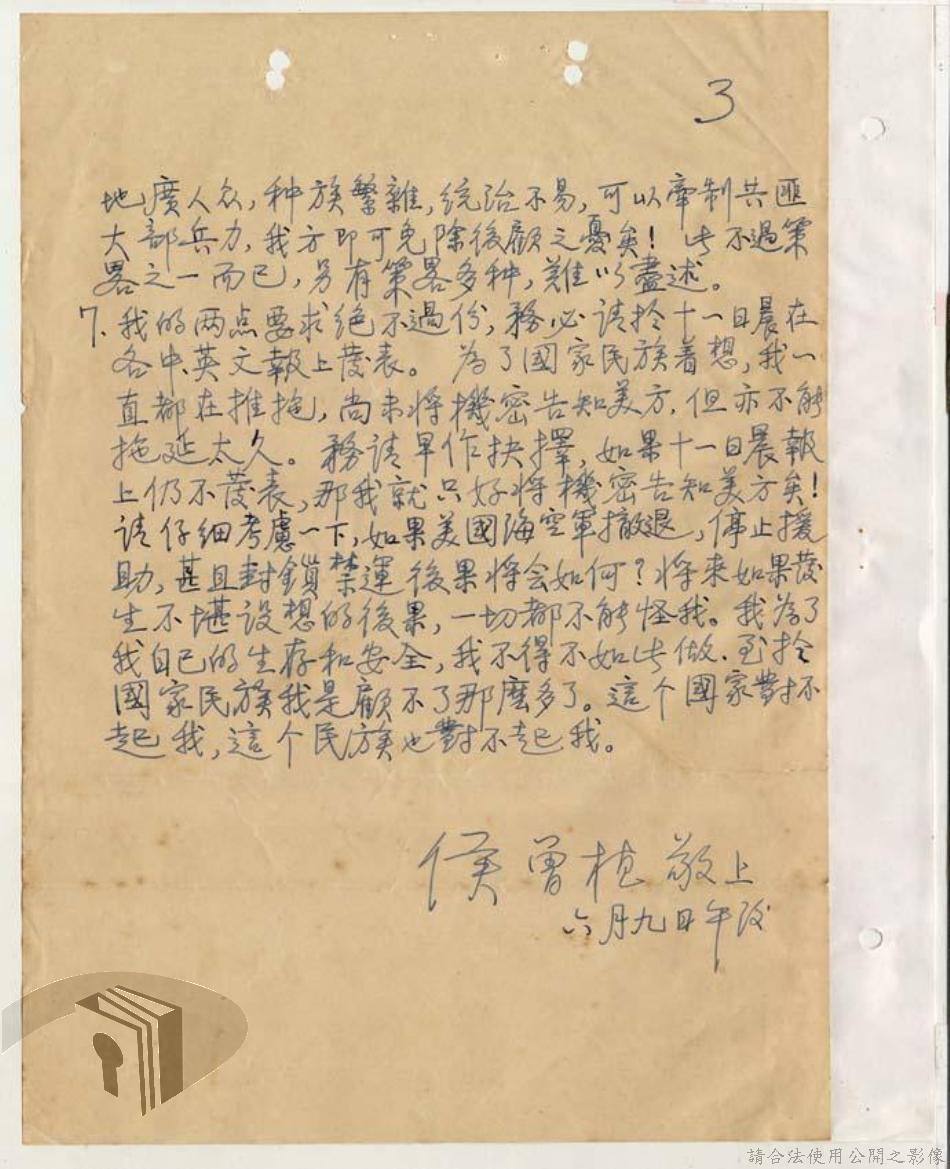 3
地廣人众，种族繁雜，统治不易，可以牽制共匪
大部兵力，我方即可免除後顧之憂矣！此不過策
畧之一而已，另有策畧多种，難以盡述。
7. 我的两点要求绝不過份，務必请於十一日晨在
各中英文報上發表。為了國家民族着想，我一
直都在推拖，尚未将機密告知美方，但亦不能
拖延太久。務请早作抉擇，如果十一日晨報
上仍不發表，那我就只好将機密告知美方矣！
请仔细考慮一下，如果美國海空軍撤退，停止援
助，甚且封鎖禁運後果将会如何？将来如果發
生不堪设想的後果，一切都不能怪我。我為了
我自己的生存和安全，我不得不如此做．至於
國家民族我是顧不了那麽多了。這个國家對不
起我，這个民族也對不起我。
侯曾植敬上
六月九日午
請合法使用公開之影像